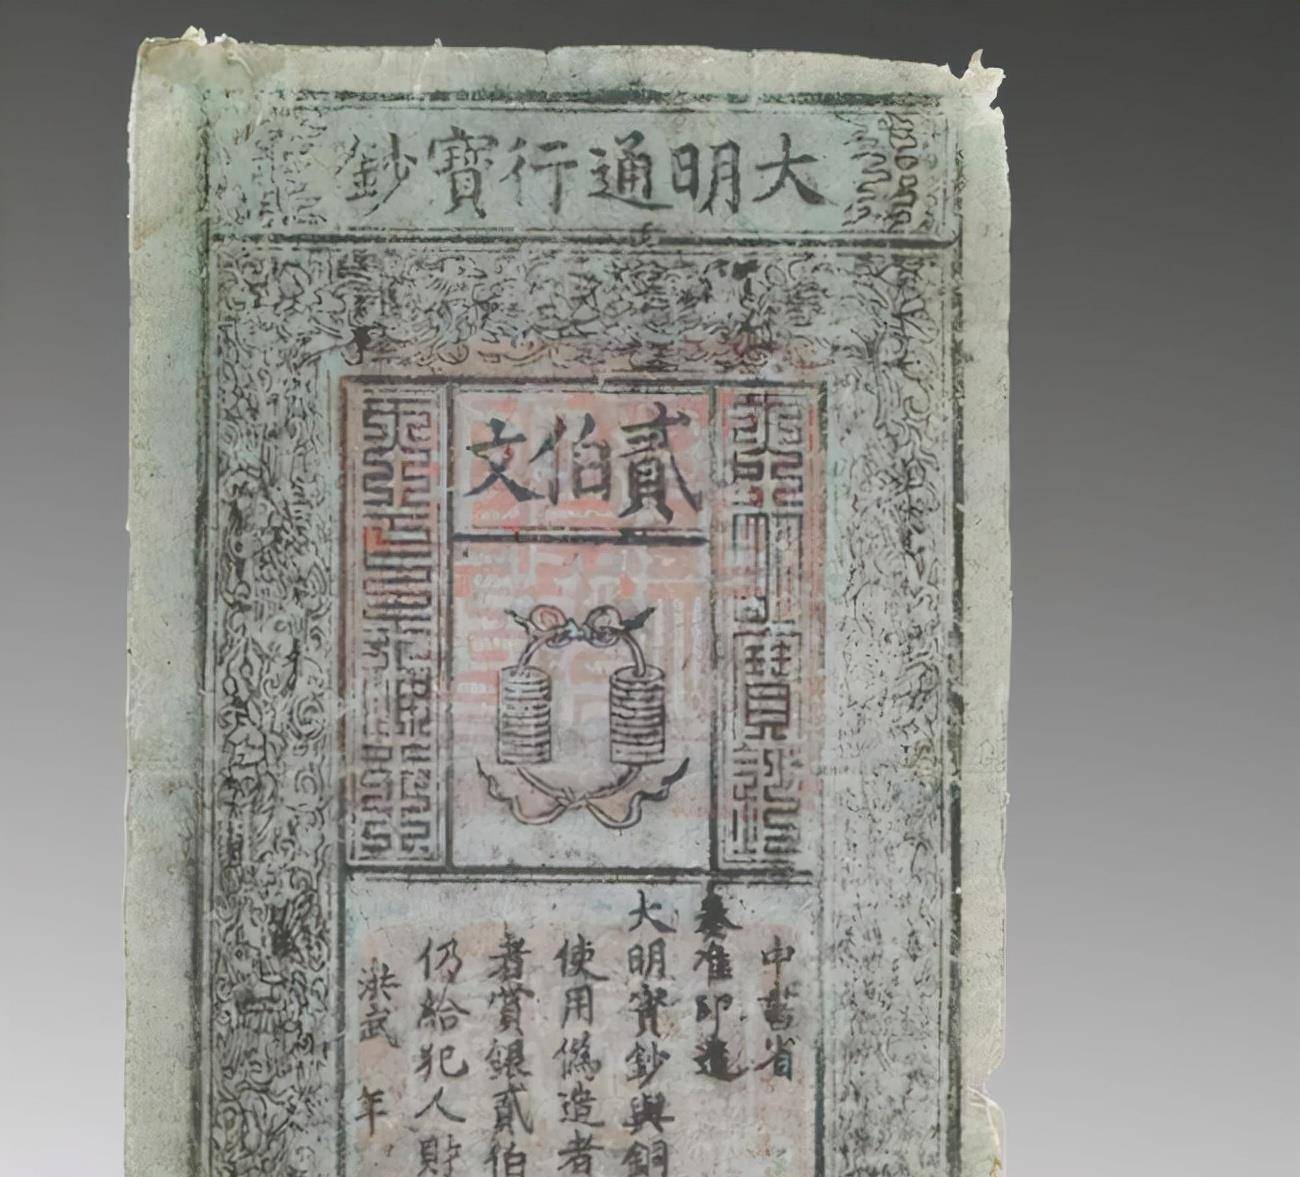 大明通行寶鈔
貳伯文
中書省
奏准印造
大明寶鈔與銅
使用僞造者
者賞銀貳伯
仍給犯人財
洪武 年